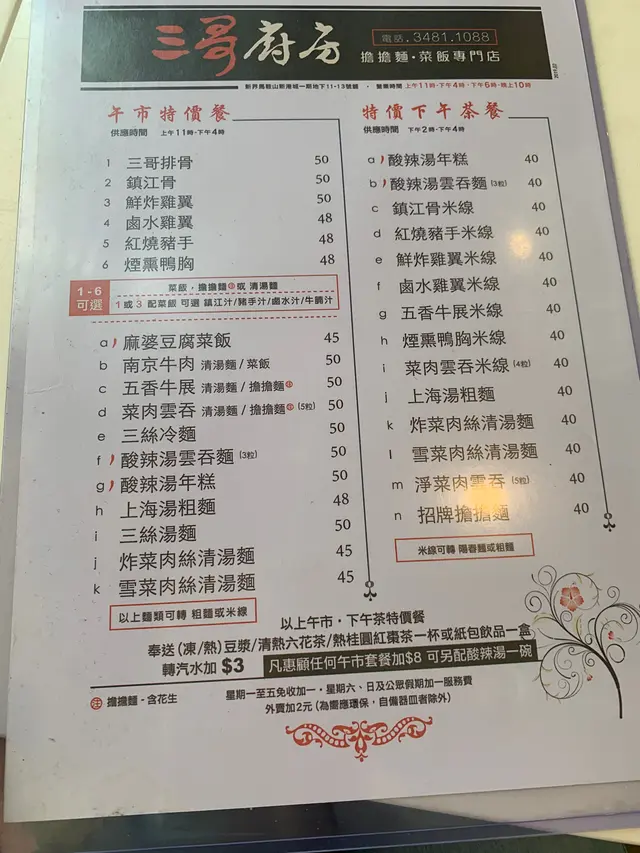 三哥廚房
電話.3481.1088
擔擔麵·菜飯專門店
新界馬鞍山新港城一期地下11-13號舖 · 營業時間 上午11時-下午4時·下午6時-晚上10時
午市特價餐
供應時間 上午11時-下午4時
1 三哥排骨 50
2 鎮江骨 50
3 鮮炸雞翼 50
4 鹵水雞翼 48
5 紅燒豬手 48
6 煙熏鴨胸 48
1-6 可選
菜飯,擔擔麵 或 清湯麵
1 或 3 配菜飯 可選 鎮江汁/豬手汁/鹵水汁/牛腩汁
a 麻婆豆腐菜飯 45
b 南京牛肉 清湯麵/菜飯 50
c 五香牛展 清湯麵/擔擔麵㊟ 50
d 菜肉雲吞 清湯麵/擔擔麵㊟(5粒) 50
e 三絲冷麵 50
f 酸辣湯雲吞麵(3粒) 50
g 酸辣湯年糕 50
h 上海湯粗麵 48
i 三絲湯麵 50
j 炸菜肉絲清湯麵 45
k 雪菜肉絲清湯麵 45
以上麵類可轉 粗麵或米線
特價下午茶餐
供應時間 下午2時-下午4時
a 酸辣湯年糕 40
b 酸辣湯雲吞麵(3粒) 40
c 鎮江骨米線 40
d 紅燒豬手米線 40
e 鮮炸雞翼米線 40
f 鹵水雞翼米線 40
g 五香牛展米線 40
h 煙熏鴨胸米線 40
i 菜肉雲吞米線(4粒) 40
j 上海湯粗麵 40
k 炸菜肉絲清湯麵 40
l 雪菜肉絲清湯麵 40
m 淨菜肉雲吞(5粒) 40
n 招牌擔擔麵 40
米線可轉 陽春麵或粗麵
以上午市·下午茶特價餐
奉送(凍/熱)豆漿/清熱六花茶/熱桂圓紅棗茶一杯或紙包飲品一盒
轉汽水加 $3 凡惠顧任何午市套餐加$8 可另配酸辣湯一碗
㊟ 擔擔麵-含花生
星期一至五免收加一·星期六、日及公眾假期加一服務費
外賣加2元(為嚮應環保,自備器皿者除外)